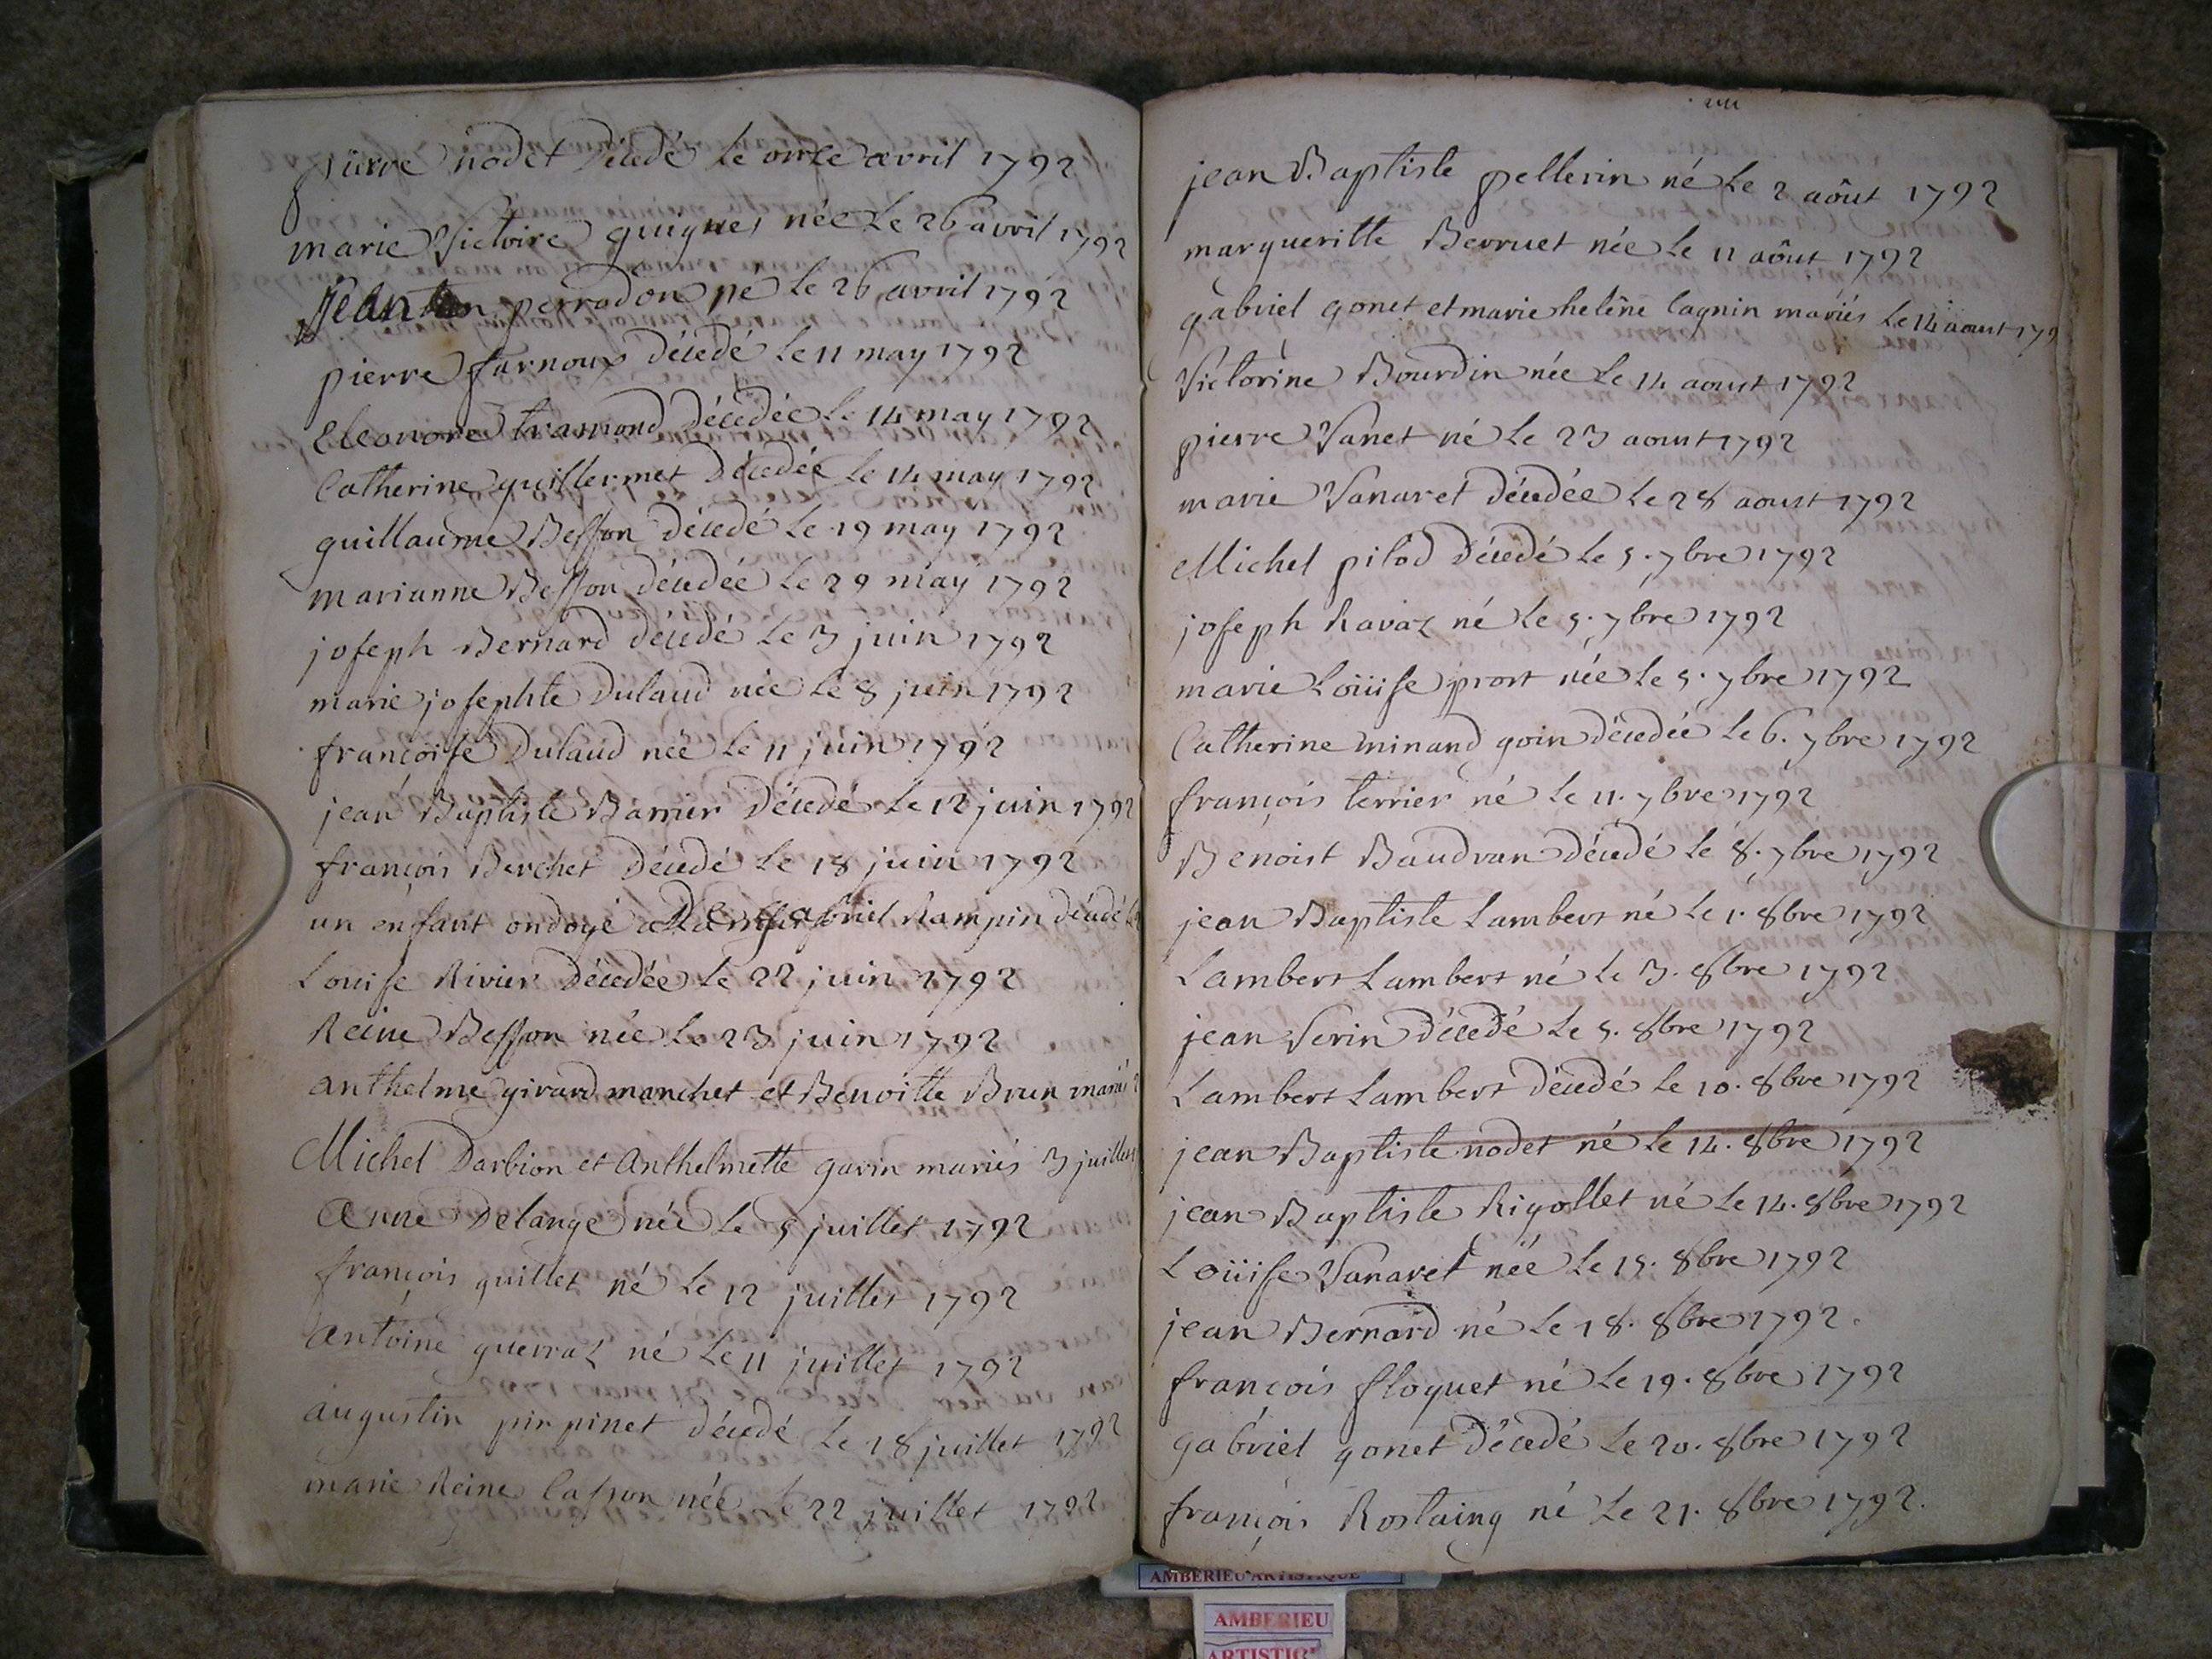 pierre nodet décédé le onze avril 1792
marie Victoire guigues née le 26 avril 1792
perradon né le 26 avril 1792
pierre farnoux décédé le 11 may 1792
Eleonore trasmond décédée le 14 may 1792
Catherine guillermet décédée le 14 may 1792
guillaume Besson décédé le 19 may 1792
marianne Besson décédée le 29 may 1792
joseph Bernard décédé le 3 juin 1792
marie josephte Dulaud née le 8 juin 1792
françoise Dulaud née le 11 juin 1792
jean Baptiste Barrier décédé le 12 juin 1792
françois Berchet décédé le 18 juin 1792
un enfant ondoyé gabriel Rampin décédé
Louise Rivier décédée le 22 juin 1792
Reine Besson née le 23 juin 1792
anthelme girard manchet et Benoitte Brun mariés
Michel Darbion et Anthelmette gavin mariés 3 juillet
Anne Delange née le 5 juillet 1792
françois guillet né le 12 juillet 1792
antoine guerraz né le 11 juillet 1792
augustin pinpinet décédé le 18 juillet 1792
marie Reine née le 22 juillet 1792
jean Baptiste pellerin né le 2 août 1792
margueritte Berruet née le 11 août 1792
gabriel gonet et marie helêne Cagnin mariés le 14 aoust 179
Victorine Bourdin née le 14 aoust 1792
pierre Vanet né le 23 aoust 1792
marie Vanaret décédée le 28 aoust 1792
Michel pilod décédé le 5. 7bre 1792
joseph Ravaz né le 5. 7bre 1792
marie Loüise prost née le 5. 7bre 1792
Catherine minand goin décédée le 6. 7bre 1792
françois terrier né le 11. 7bre 1792
Benoist Baudvan décédé le 8. 7bre 1792
jean Baptiste Lambert né le 1. 8bre 1792
Lambert Lambert né le 3. 8bre 1792
jean Serin décédé le 5. 8bre 1792
Lambert Lambert décédé le 10. 8bre 1792
jean Baptiste nodet né le 14. 8bre 1792
jean Baptiste Rigollet né le 14. 8bre 1792
Loüise Vanaret née le 15. 8bre 1792
jean Bernard né le 18. 8bre 1792.
françois floquet né le 19. 8bre 1792
gabriel gonet décédé le 20. 8bre 1792
françois Rostaing né le 21. 8bre 1792.
AMBERIEU ARTISTIQUE
AMBERIEU
ARTISTIQUE